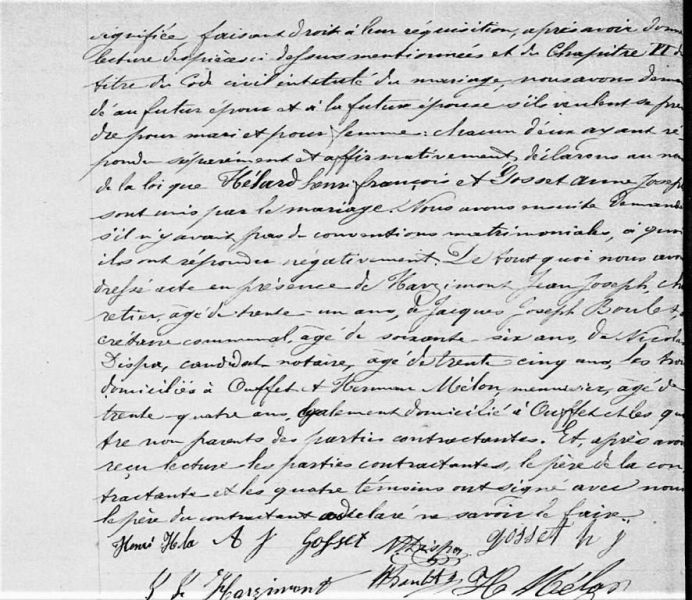 signifiée faisant droit à leur réquisition, après avoir donn
lecture des pièces ci dessus mentionnées et du Chapitre VI du
titre du Code civil intitulé du mariage, nous avons deman
dé au futur époux et à la future épouse s'ils veulent se pren
dre pour mari et pour femme: chacun d'eux ayant ré-
pondu séparément et affirmativement, déclarons au nom
de la loi que Hélard henri françois et Gosset anne Joseph
sont unis par le mariage. Nous avons ensuite demandé
s'il n'y avait pas de conventions matrimoniales, à quoi
ils ont répondu négativement. De tout quoi nous avons
dressé acte en présence de Harzimont Jean Joseph, cha
retier, âgé de trente-un ans, de Jacques Joseph Boulet, se
crétaire communal, âgé de soixante-six ans, de Nicolas
Dispa, candidat notaire, âgé de trente-cinq ans, les trois
domiciliés à Ouffet et Herman Mélon, meunier, âgé de
trente-quatre ans, également domicilié à Ouffet et les qua
tre non parents des parties contractantes. Et, après avoir
reçu lecture les parties contractantes, le père de la con
tractante et les quatre témoins ont signé avec nous
le père du contractant a déclaré ne savoir le faire
Henri Hela A J Gosset N Dispa gosset h j
J J Harzimont H Mélon